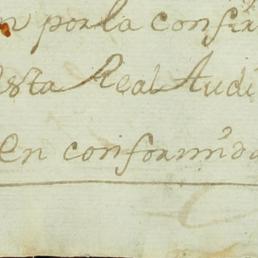 n por la confir
esta Real Audi
en conformida